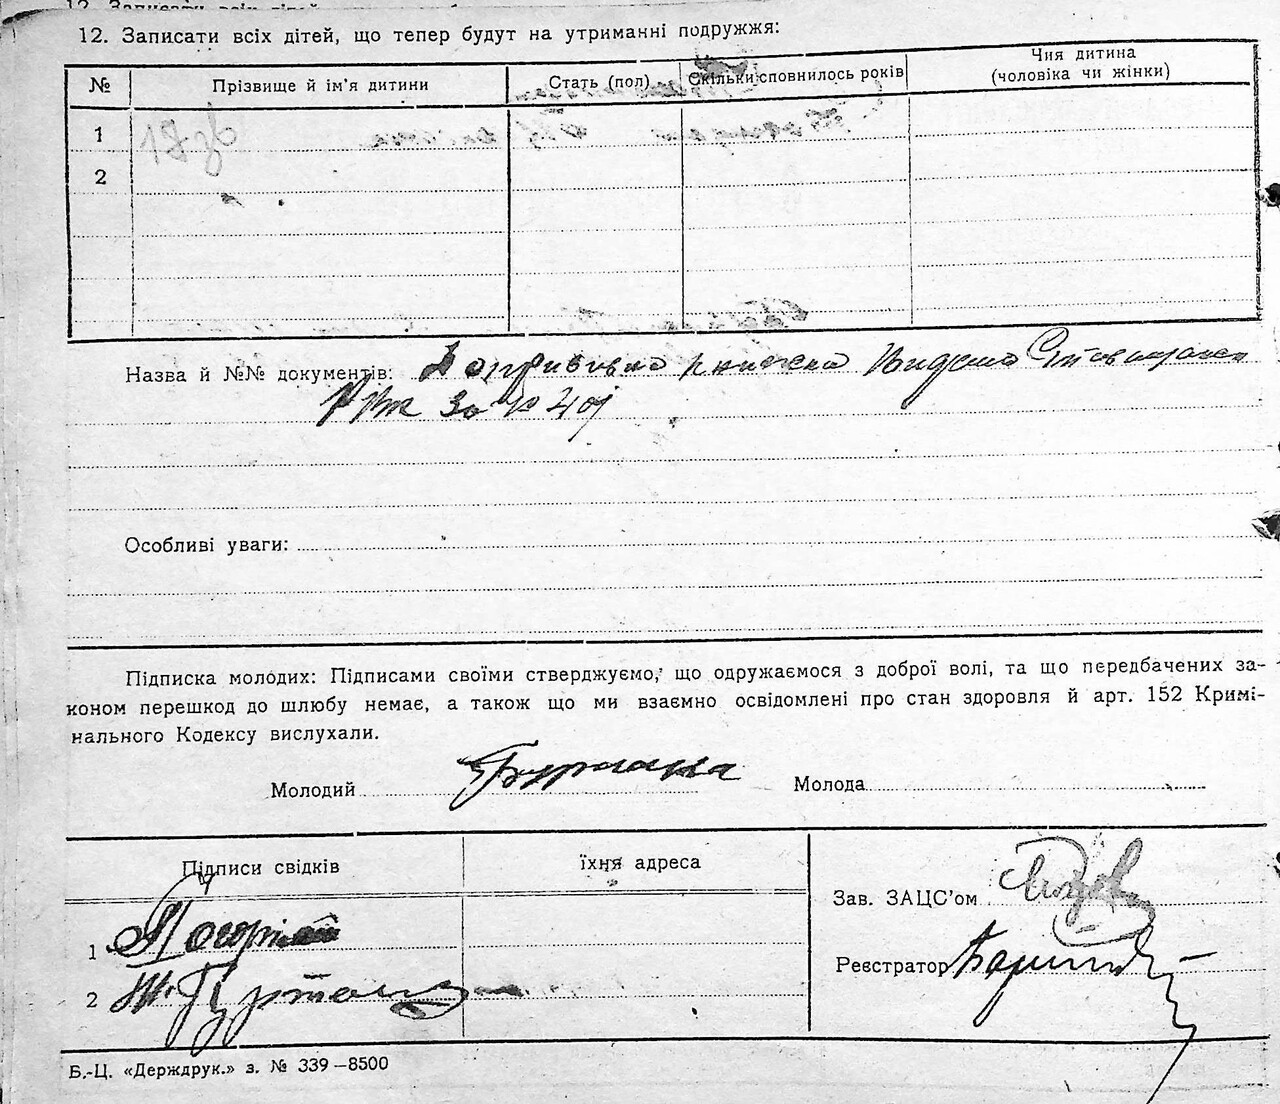 12. Записати всіх дітей, що тепер будут на утриманні подружжя:
№ Прізвище й ім'я дитини Стать (пол) Скільки сповнилось років Чия дитина
(чоловіка чи жінки)
1
2
Назва й №№ документів: книжка Видана
за № 401
Особливі уваги:
Підписка молодих: Підписами своїми стверджуємо, що одружаємося з доброї волі, та що передбачених за-
коном перешкод до шлюбу немає, а також що ми взаємно освідомлені про стан здоровля й арт. 152 Кримі-
нального Кодексу вислухали.
Молодий Молода
Підписи свідків їхня адреса
Зав. ЗАЦС'ом
1
Реєстратор
2
Б.-Ц. «Держдрук.» з. № 339–8500